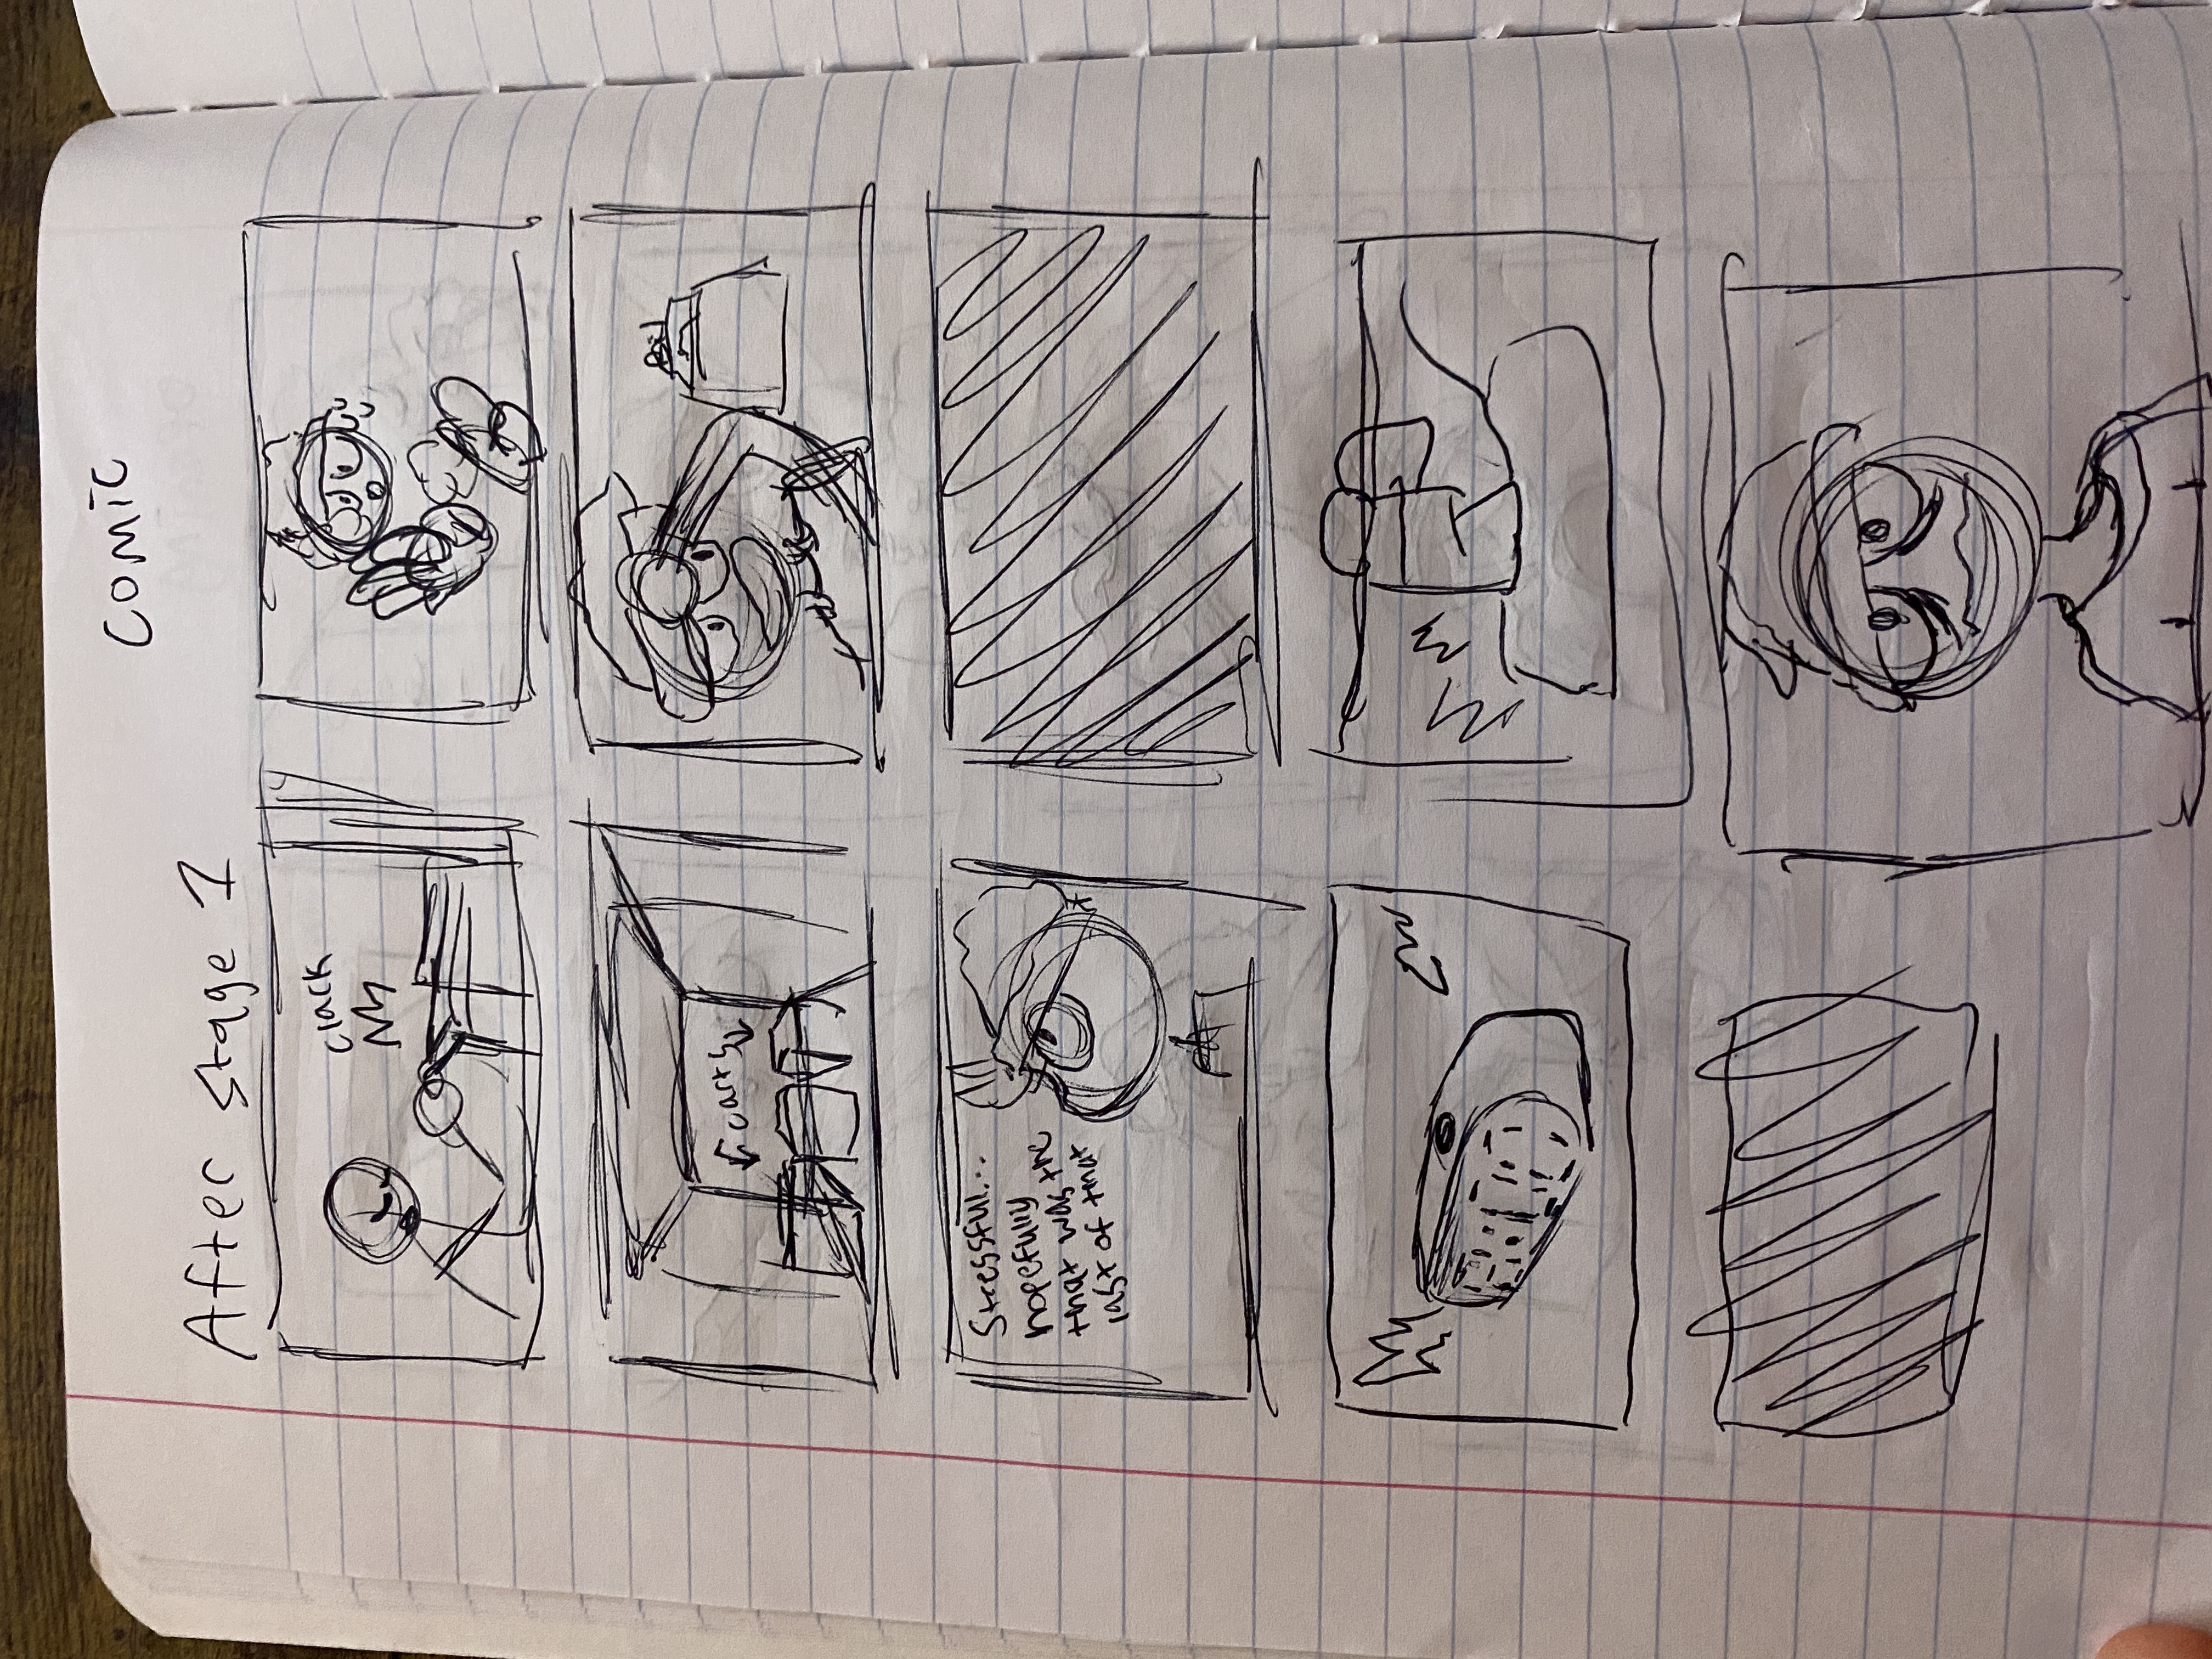 comic
After stage 1
clack
carts
Stressful...
hopefully
that was the
last of that